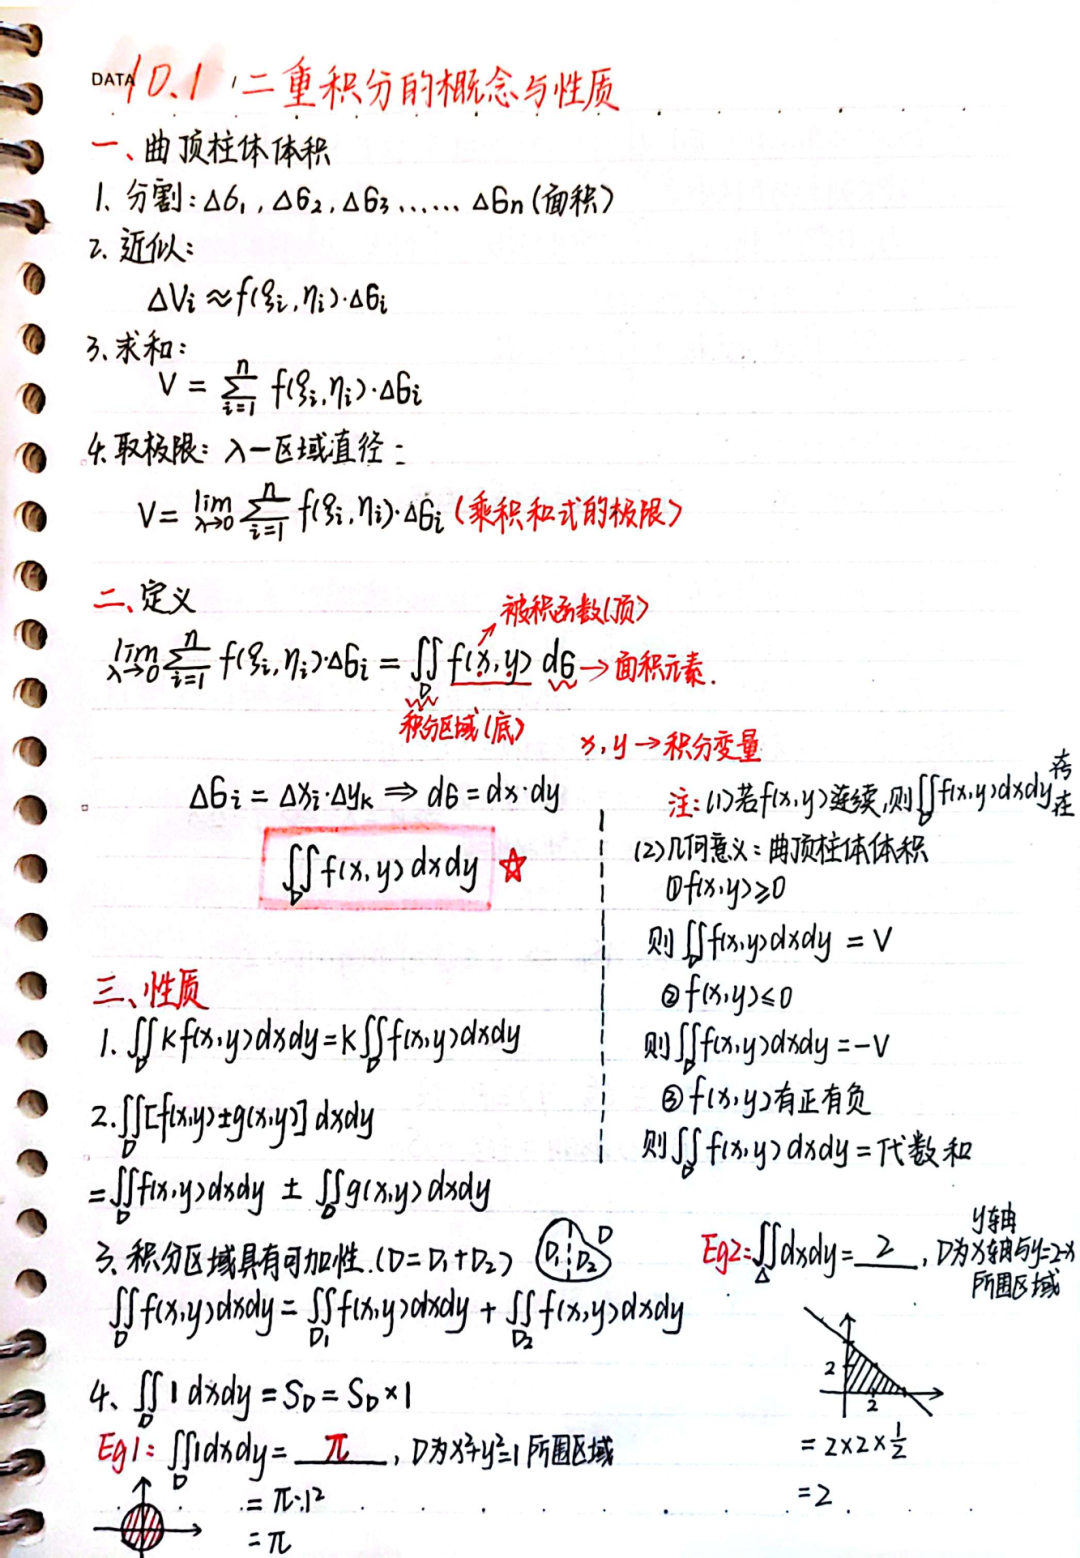 DATA 10.1 二重积分的概念与性质
一、曲顶柱体体积
1. 分割：Δσ₁, Δσ₂, Δσ₃ …… Δσn (面积)
2. 近似：
ΔVi ≈ f(ξi, ηi)·Δσi
3. 求和：
V = ∑_{i=1}^{n} f(ξi, ηi)·Δσi
4. 取极限：λ—区域直径：
V = lim_{λ→0} ∑_{i=1}^{n} f(ξi, ηi)·Δσi (乘积和式的极限)
二、定义
被积函数(顶)
lim_{λ→0} ∑_{i=1}^{n} f(ξi, ηi)·Δσi = ∬_D f(x,y) dσ → 面积元素.
积分区域(底)
x, y → 积分变量
Δσi = Δxi·Δyk ⇒ dσ = dx·dy
∬_D f(x,y) dxdy ☆
注：(1) 若f(x,y)连续, 则∬_D f(x,y)dxdy存在
(2) 几何意义：曲顶柱体体积
① f(x,y)≥0
则∬_D f(x,y)dxdy = V
② f(x,y)≤0
则∬_D f(x,y)dxdy = -V
③ f(x,y)有正有负
则∬_D f(x,y)dxdy = 代数和
三、性质
1. ∬_D Kf(x,y)dxdy = K∬_D f(x,y)dxdy
2. ∬_D [f(x,y)±g(x,y)] dxdy
= ∬_D f(x,y)dxdy ± ∬_D g(x,y)dxdy
3. 积分区域具有可加性.(D=D₁+D₂)
D₁ D₂ D
∬_D f(x,y)dxdy = ∬_{D₁} f(x,y)dxdy + ∬_{D₂} f(x,y)dxdy
4、∬_D 1 dxdy = S_D = S_D×1
Eg1：∬_D 1dxdy = π, D为x²+y²=1所围区域
= π·1²
= π
Eg2：∬_Δ dxdy = 2, D为x轴与y=2-x
y轴
所围区域
2
2
= 2×2×½
= 2